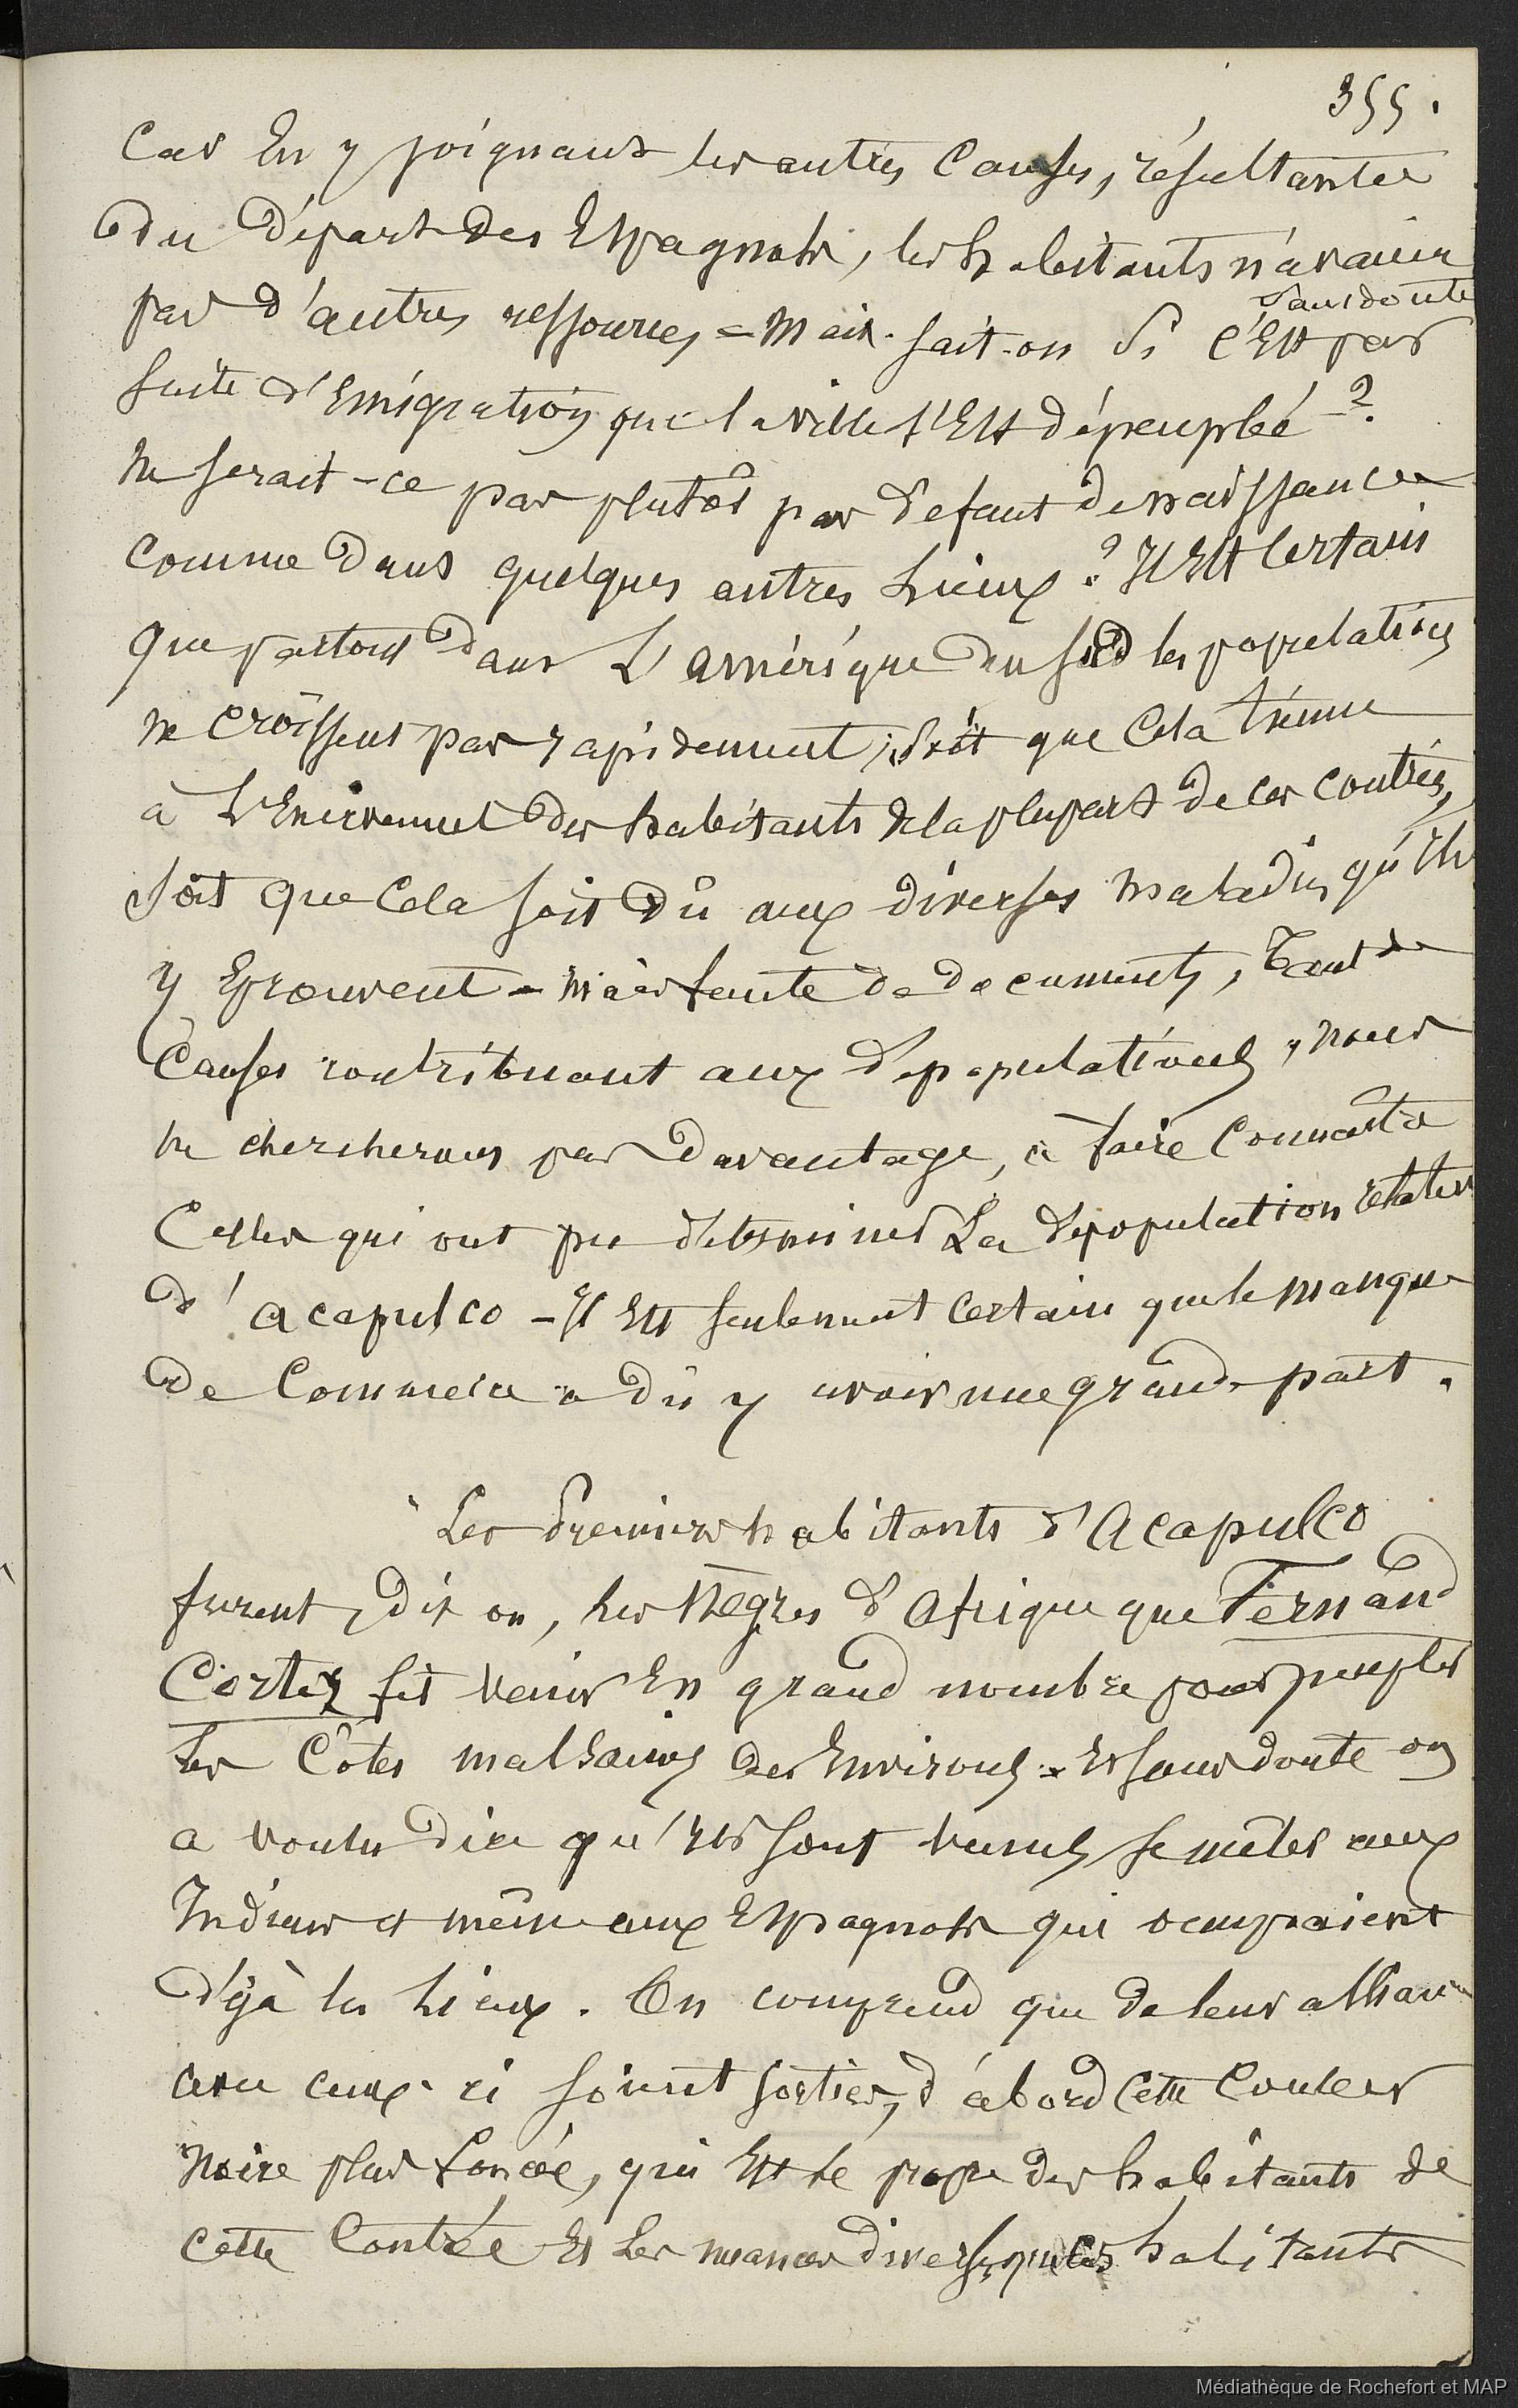 355.
Car En y joignant les autres Causes, résultantes
du Départ des Espagnols, les habitants n'avaient
pas d'autres ressources = Mais sait-on si c'Est par
sans doute
suite d'Emigration que la ville s'Est dépeuplée ?
ne serait-ce pas plutôt par défaut de naissances
comme dans quelques autres lieux ? Il Est Certain
que partout dans L'amérique du Sud les populations
ne croissent pas rapidement, soit que Cela tienne
à L'Enervement des habitants de la plupart de ces contrées,
soit que Cela soit dû aux diverses maladies qu'ils
y Eprouvent = mais faute de documents, tant de
Causes contribuant aux dépopulations, nous
ne chercherons pas Davantage, à faire Connaitre
Celles qui ont pu déterminer La dépopulation relative
d'acapulco - Il Est seulement certain que le manque
de Commerce a dû y avoir une grande part.
Les Premiers habitants d'Acapulco
furent, dit on, les Nègres d'Afrique que Fernand
Cortez fit venir En grand nombre pour peupler
les Côtes malsaines des Environs = Et sans doute on
a voulu dire qu'ils sont venus se mêler aux
Indiens et même aux Espagnols qui occupaient
déjà les lieux. On comprend que de leur alliance
avec ceux-ci soient sorties, d'abord cette Couleur
Noire plus foncée, qui Est le propre des habitants de
cette Contrée Et les nuances diverses, que les habitants
Médiathèque de Rochefort et MAP